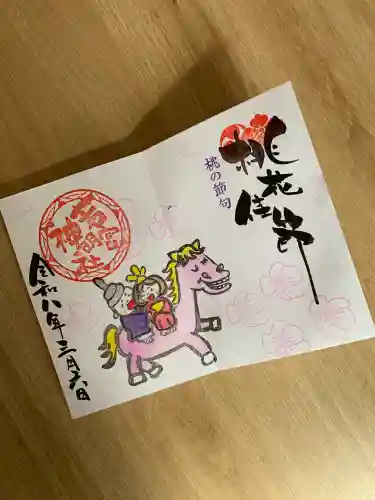 桃花佳節
桃の節句
令和八年三月六日
神明社